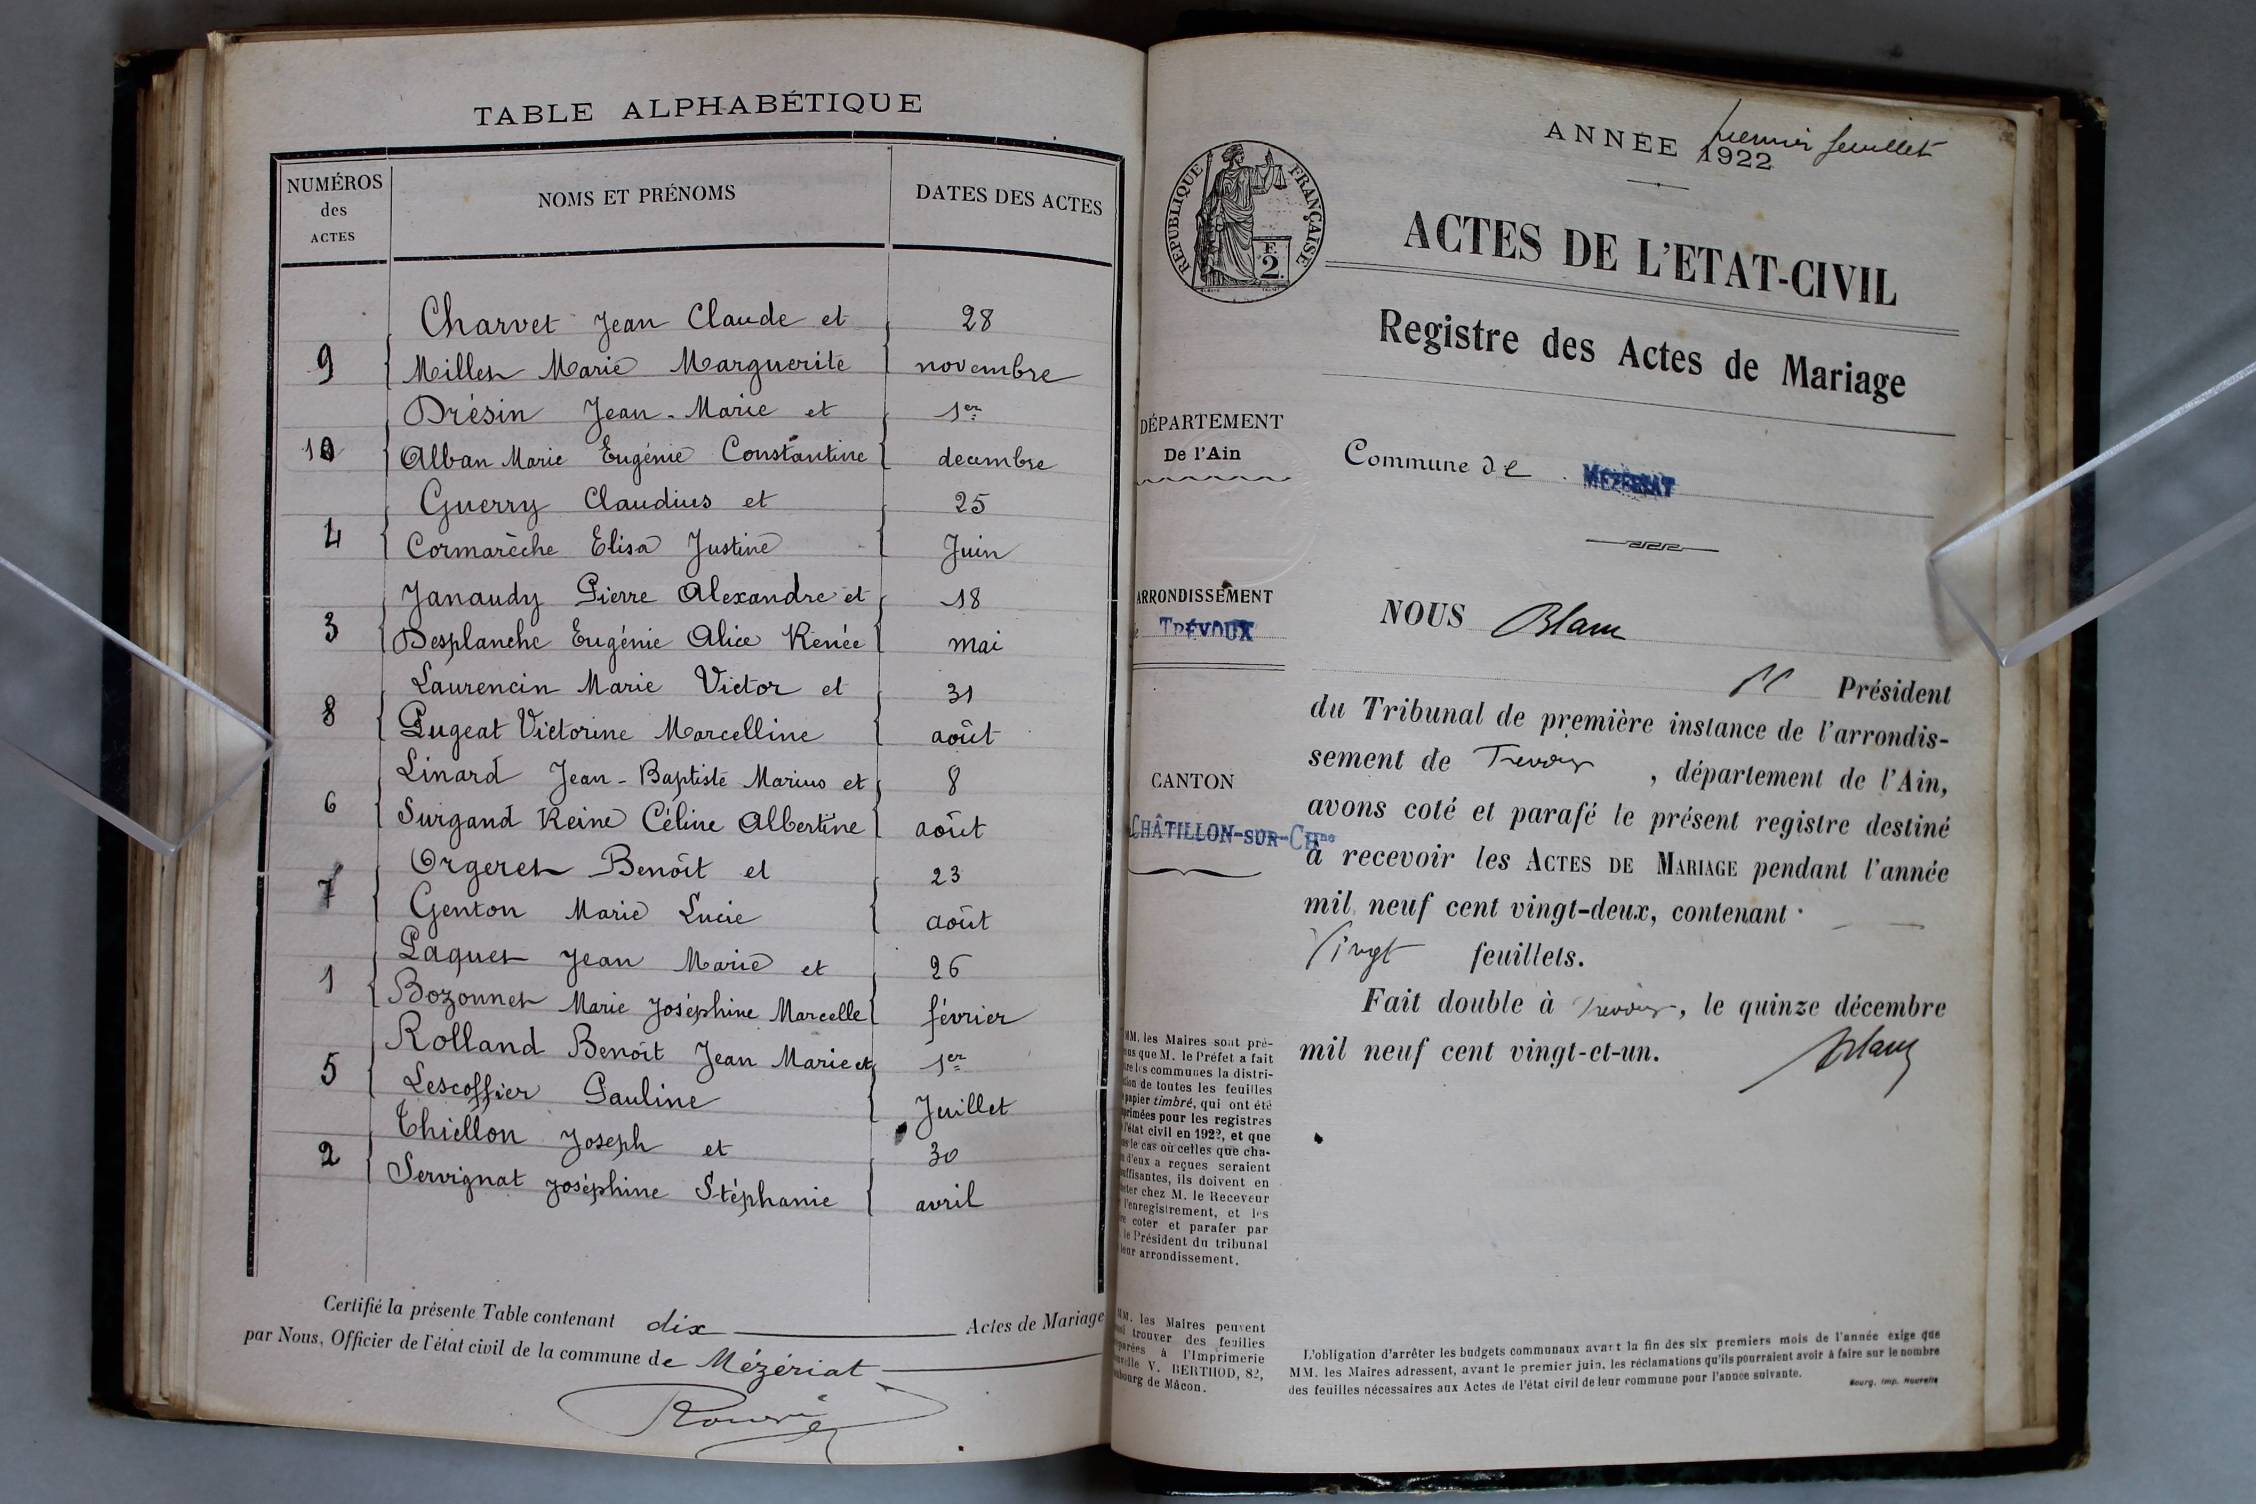 TABLE ALPHABÉTIQUE
NUMÉROS
des
ACTES
NOMS ET PRÉNOMS
DATES DES ACTES
Charvet Jean Claude et 28
9 Millet Marie Marguerite novembre
Drésin Jean-Marie et 1er
10 Alban Marie Eugénie Constantine decembre
Guerry Claudius et 25
4 Cormarèche Elisa Justine Juin
Janaudy Pierre Alexandre et 18
3 Desplanche Eugénie Alice Renée mai
Laurencin Marie Victor et 31
8 Pugeat Victorine Marcelline août
Linard Jean-Baptiste Marius et 8
6 Surgand Reine Céline Albertine août
Orgeret Benoît et 23
7 Genton Marie Lucie août
Paquet Jean Marie et 26
1 Bozonnet Marie Joséphine Marcelle février
Rolland Benoît Jean Marie et 1er
5 Lescoffier Pauline Juillet
Thiellon Joseph et 30
2 Servignat Joséphine Stéphanie avril
Certifié la présente Table contenant dix Actes de Mariage
par Nous, Officier de l'état civil de la commune de Mézériat
premier feuillet
ANNÉE 1922
RÉPUBLIQUE FRANÇAISE
F.
2.
ACTES DE L'ETAT-CIVIL
Registre des Actes de Mariage
DÉPARTEMENT
De l'Ain
Commune de MÉZÉRIAT
ARRONDISSEMENT
TRÉVOUX
NOUS Blanc
Président
du Tribunal de première instance de l'arrondis-
sement de Trévoux, département de l'Ain,
CANTON
CHÂTILLON-SUR-CHne
avons coté et parafé le présent registre destiné
à recevoir les ACTES DE MARIAGE pendant l'année
mil neuf cent vingt-deux, contenant
Vingt feuillets.
Fait double à Trévoux, le quinze décembre
mil neuf cent vingt-et-un.
Blanc
MM. les Maires sont pré-
us que M. le Préfet a fait
re les communes la distri-
tion de toutes les feuilles
papier timbré, qui ont été
primées pour les registres
l'état civil en 1922, et que
s le cas où celles que cha-
n d'eux a reçues seraient
uffisantes, ils doivent en
eter chez M. le Receveur
l'enregistrement, et les
re coter et parafer par
le Président du tribunal
leur arrondissement.
MM. les Maires peuvent
trouver des feuilles
parées à l'Imprimerie
uvelle V. BERTHOD, 82,
ubourg de Mâcon.
L'obligation d'arrêter les budgets communaux avart la fin des six premiers mois de l'année exige que
MM. les Maires adressent, avant le premier juin, les réclamations qu'ils pourraient avoir à faire sur le nombre
des feuilles nécessaires aux Actes de l'état civil de leur commune pour l'année suivante.
Bourg, Imp. Nouvelle